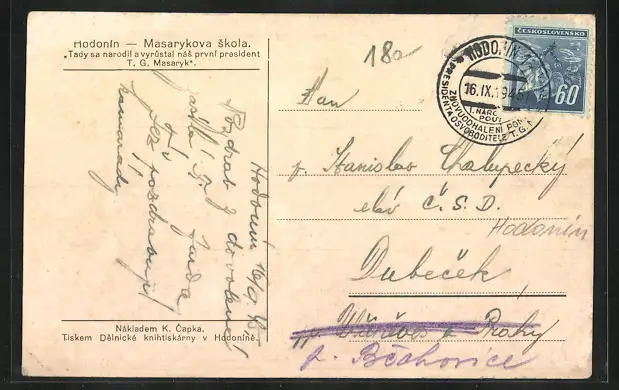 Hodonín — Masarykova škola.
„Tady sa narodil a vyrůstal náš první president
T. G. Masaryk".
18a
ČESKOSLOVENSKO
60
HODONÍN 1
16.IX.1945
I. NÁROD.
POUŤ
ZNOVUODHALENÍ POM
PRESIDENTA OSVOBODITELE T. G. M.
Pan
p. Stanislav Chalupecký
elév Č.S.D.
Hodonín
Dubeček,
Prahy
p. Běchovice
Hodonín 16/9 45
Pozdrav z dovolené
zasílá
Jarda
též pozdravuj
kamarády
Nákladem K. Čapka.
Tiskem Dělnické knihtiskárny v Hodoníně.